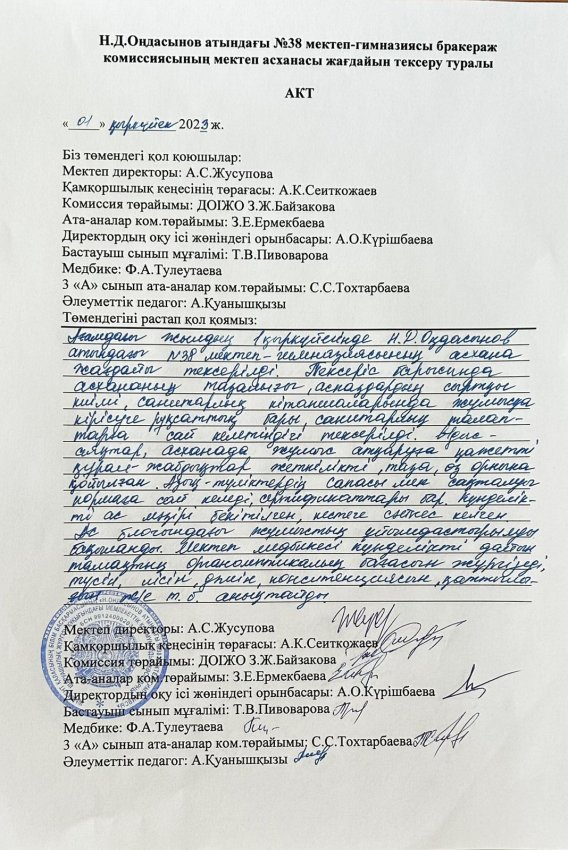 Н.Д.Оңдасынов атындағы №38 мектеп-гимназиясы бракераж
комиссиясының мектеп асханасы жағдайын тексеру туралы
АКТ
« 01 » қыркүйек 2023 ж.
Біз төмендегі қол қоюшылар:
Мектеп директоры: А.С.Жусупова
Қамқоршылық кеңесінің төрағасы: А.К.Сеиткожаев
Комиссия төрайымы: ДОІЖО З.Ж.Байзакова
Ата-аналар ком.төрайымы: З.Е.Ермекбаева
Директордың оқу ісі жөніндегі орынбасары: А.О.Күрішбаева
Бастауыш сынып мұғалімі: Т.В.Пивоварова
Медбике: Ф.А.Тулеутаева
3 «А» сынып ата-аналар ком.төрайымы: С.С.Тохтарбаева
Әлеуметтік педагог: А.Қуанышқызы
Төмендегіні растап қол қоямыз:
Ағымдағы жылдың 1 қыркүйегінде Н.Д.Оңдасынов
атындағы №38 мектеп-гимназиясының асхана
жағдайы тексерілді. Тексеріс барысында
асхананың тазалығы, аспаздардың сыртқы
киімі, санитарлық кітапшаларында жұмысқа
кірісуге рұқсаттың бары, санитарлық талап-
тарға сай келетіндігі тексерілді. Ыдыс-
аяқтар, асханада жұмыс атқаруға қажетті
құрал-жабдықтар жеткілікті, таза, өз орнына
қойылған. Азық-түліктердің сапасы мен сақталуы
нормаға сай келеді, сертификаттары бар. Күнделік-
ті ас мәзірі бекітілген, кестеге сәйкес келген
Ас блогындағы жұмыстың ұйымдастырылуы
бақыланды. Мектеп медбикесі күнделікті дайын
тамақтың органолептикалық бағасын жүргізеді,
түсін, иісін, дәмін, консистенциясын,
ж/е т.б. анықтайды
Мектеп директоры: А.С.Жусупова
Қамқоршылық кеңесінің төрағасы: А.К.Сеиткожаев
Комиссия төрайымы: ДОІЖО З.Ж.Байзакова
Ата-аналар ком.төрайымы: З.Е.Ермекбаева
Директордың оқу ісі жөніндегі орынбасары: А.О.Күрішбаева
Бастауыш сынып мұғалімі: Т.В.Пивоварова
Медбике: Ф.А.Тулеутаева
3 «А» сынып ата-аналар ком.төрайымы: С.С.Тохтарбаева
Әлеуметтік педагог: А.Қуанышқызы